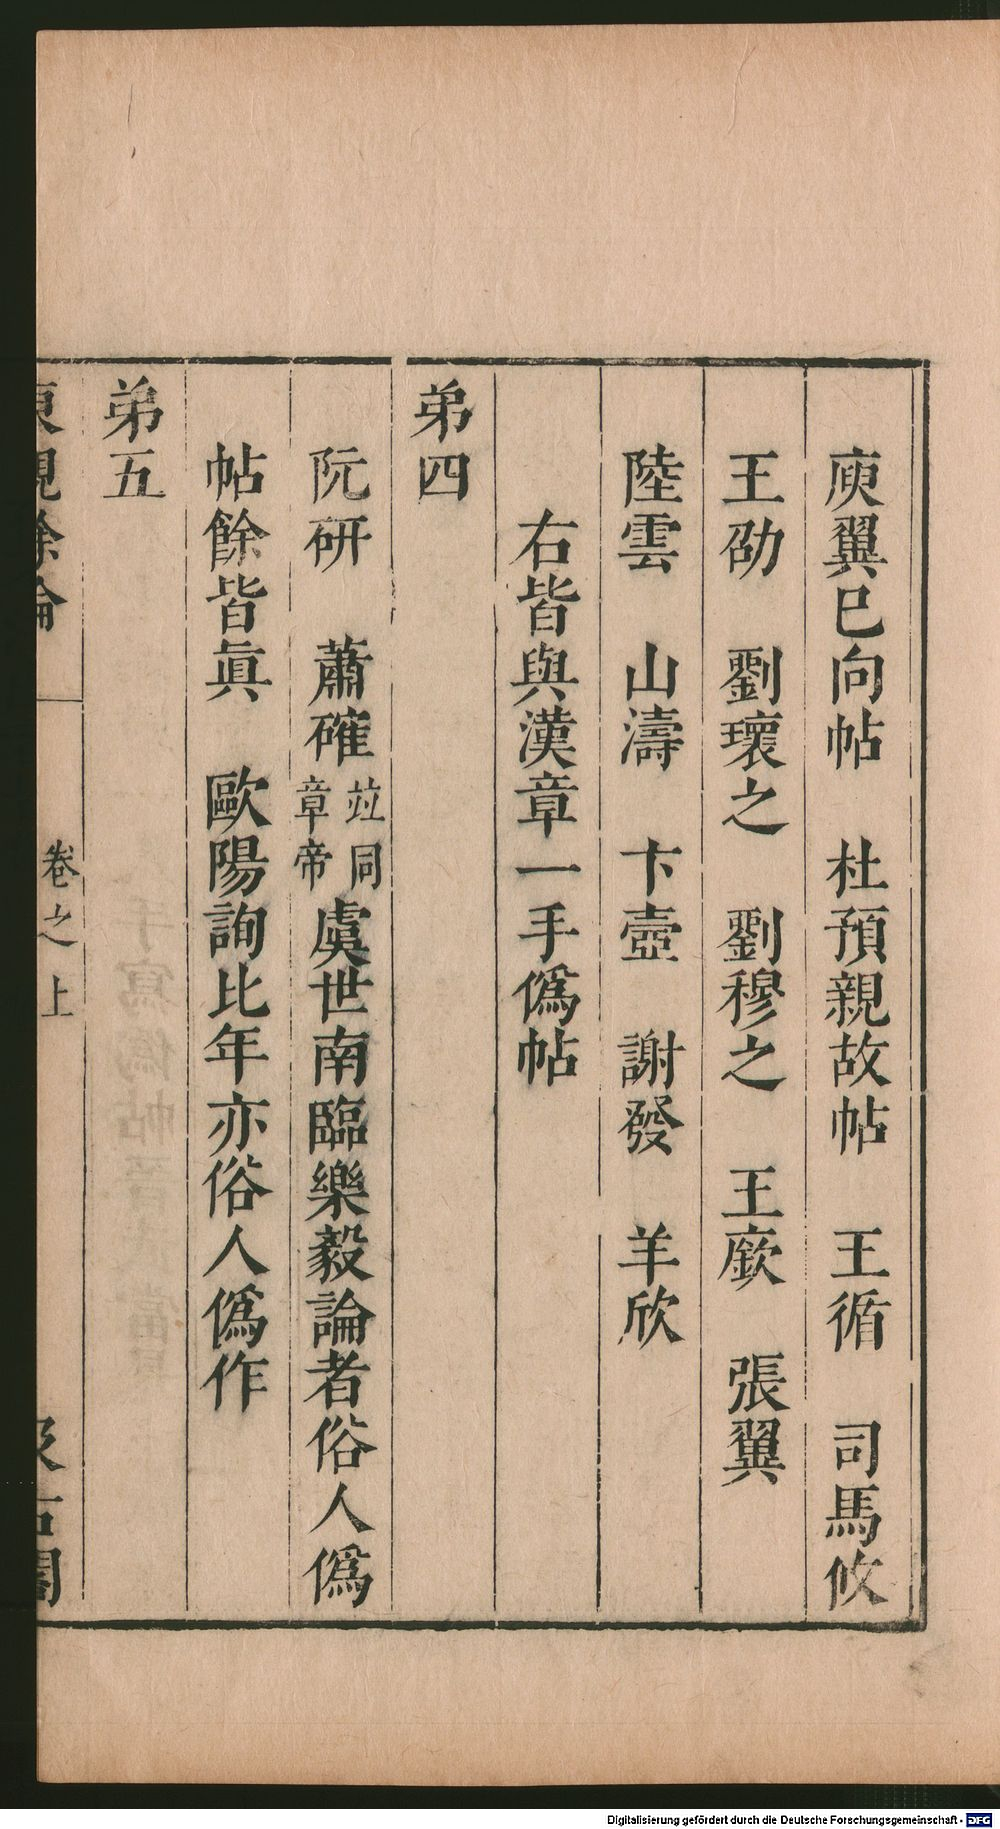 庾翼已向帖　杜預親故帖　王循　司馬攸
王劭　劉瓌之　劉穆之　王廞　張翼
陸雲　山濤　卞壼　謝發　羊欣
右皆與漢章一手僞帖
弟四
阮研　蕭確竝同章帝虞世南臨樂毅論者俗人僞
帖餘皆眞　歐陽詢比年亦俗人僞作
弟五
東觀餘論　卷之上　汲古閣
Digitalisierung gefördert durch die Deutsche Forschungsgemeinschaft - DFG